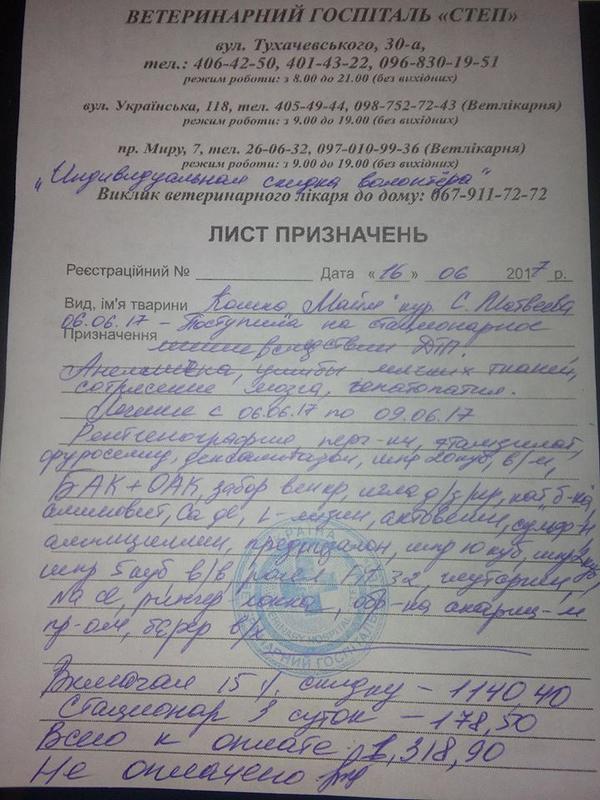 ВЕТЕРИНАРНИЙ ГОСПІТАЛЬ «СТЕП»
вул. Тухачевського, 30-а,
тел.: 406-42-50, 401-43-22, 096-830-19-51
режим роботи: з 8.00 до 21.00 (без вихідних)
вул. Українська, 118, тел. 405-49-44, 098-752-72-43 (Ветлікарня)
режим роботи: з 9.00 до 19.00 (без вихідних)
пр. Миру, 7, тел. 26-06-32, 097-010-99-36 (Ветлікарня)
режим роботи: з 9.00 до 19.00 (без вихідних)
"Индивидуальная скидка волонтёра"
Виклик ветеринарного лікаря до дому: 067-911-72-72
ЛИСТ ПРИЗНАЧЕНЬ
Реєстраційний № Дата «16» 06 2017 р.
Вид, ім'я тварини Кошка Майя кур. С. Матвеева
06.06.17 - Поступила на стационарное
Призначення вследствии ДТП.
ушибы мягких тканей,
сотрясение мозга, гепатопатия.
Лечение с 06.06.17 по 09.06.17
Рентгенография, этамзилат,
фуросемид, дексаметазон, шпр 20куб, в/м,
БАК + ОАК, забор
L-лизин, актовегин,
ампициллин, преднизолон, шпр 10 куб,
шпр 5 куб в/в
Na cl, рингер обр-ка
пр-ом,
Включая 15% скидку - 1140,40
Стационар 3 суток - 178,50
Всего к оплате: 1,318,90
Не оплачено